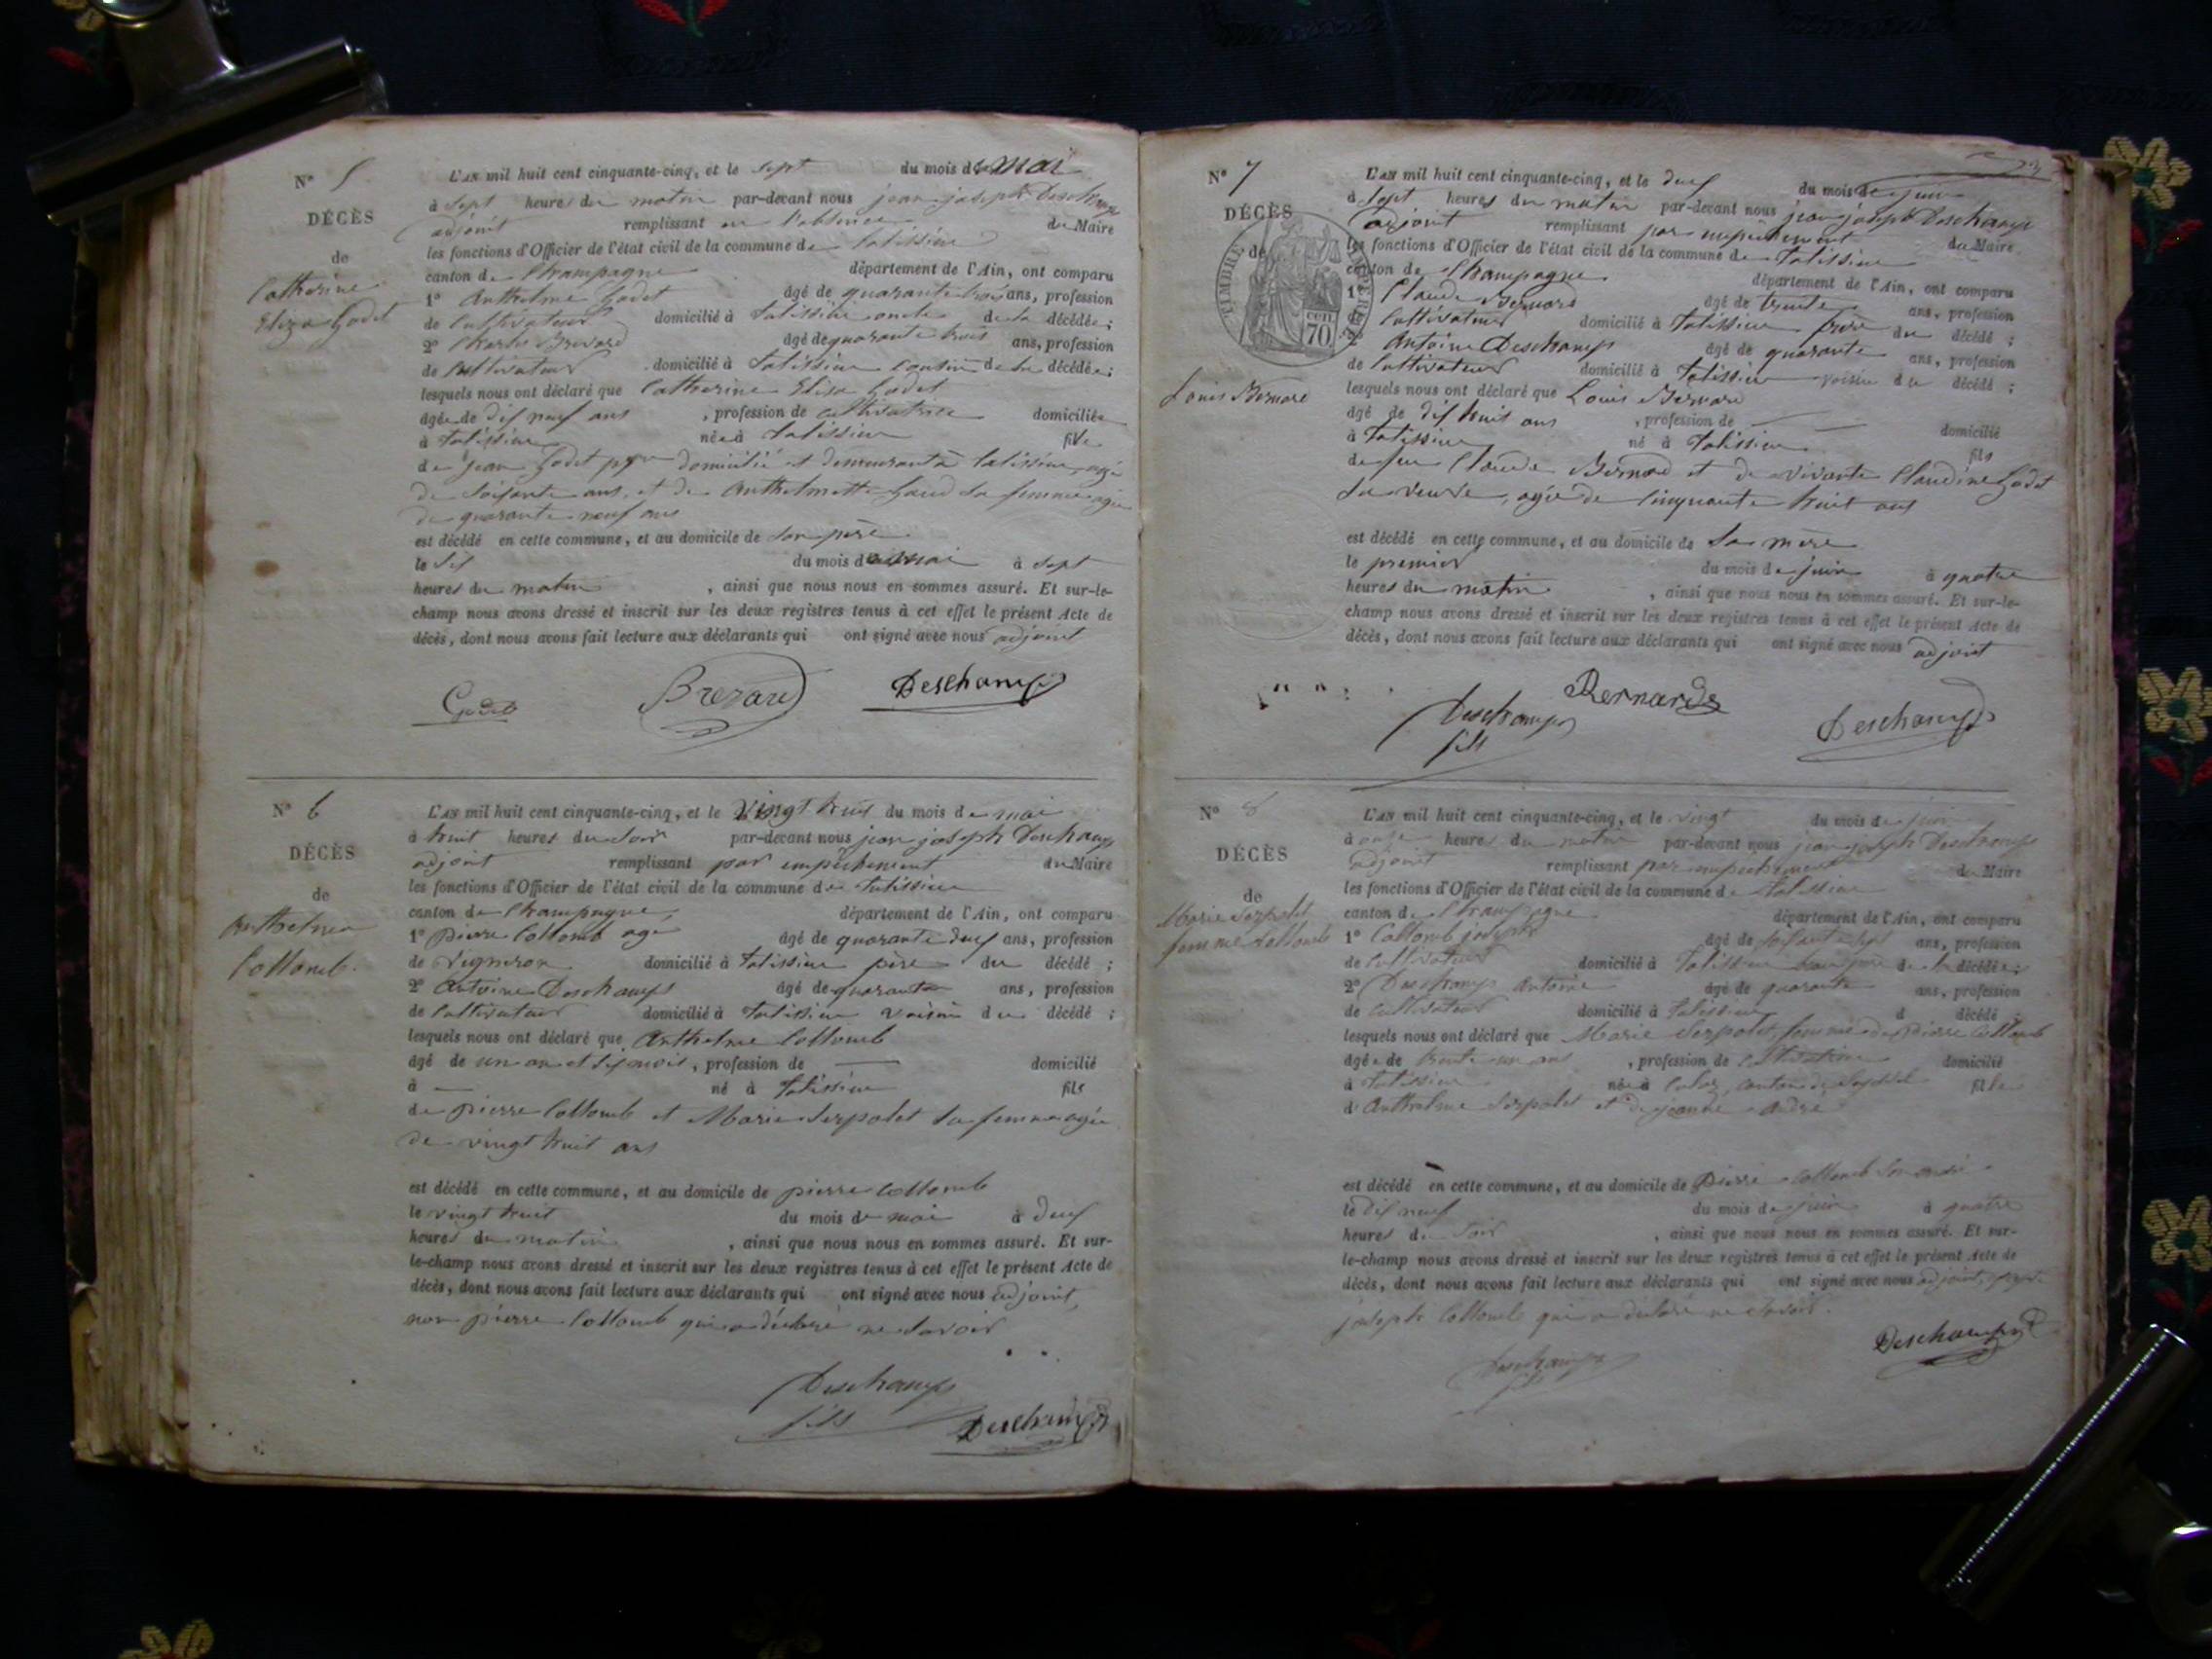 N° 5
DÉCÈS
de
Catherine
Eliza Godet
L'AN mil huit cent cinquante-cinq, et le sept du mois de mai
à sept heures du matin par-devant nous jean joseph Deschamps
adjoint remplissant en l'absence du Maire
les fonctions d'Officier de l'état civil de la commune de talissieu
canton de Champagne département de l'Ain, ont comparu
1° Anthelme Godet âgé de quarante trois ans, profession
de Cultivateur domicilié à talissieu oncle de la décédée ;
2° Charles Brevard âgé de quarante trois ans, profession
de Cultivateur domicilié à talissieu cousin de la décédée ;
lesquels nous ont déclaré que Catherine Eliza Godet
âgée de dix neuf ans , profession de cultivatrice domiciliée
à talissieu née à talissieu fille
de jean Godet domicilié et demeurant à talissieu, agé
de soixante ans, et de Anthelmette sa femme agée
de quarante neuf ans
est décédé en cette commune, et au domicile de son père
le six du mois de mai à sept
heures du matin , ainsi que nous nous en sommes assuré. Et sur-le-
champ nous avons dressé et inscrit sur les deux registres tenus à cet effet le présent Acte de
décès, dont nous avons fait lecture aux déclarants qui ont signé avec nous adjoint
Godet Brevard Deschamps
N° 6
DÉCÈS
de
Anthelme
Collomb.
L'AN mil huit cent cinquante-cinq, et le vingt huit du mois de mai
à huit heures du soir par-devant nous jean joseph Deschamps
adjoint remplissant par empêchement du Maire
les fonctions d'Officier de l'état civil de la commune de talissieu
canton de Champagne, département de l'Ain, ont comparu
1° pierre Collomb agé âgé de quarante deux ans, profession
de vigneron domicilié à talissieu père du décédé ;
2° Antoine Deschamps âgé de quarante ans, profession
de Cultivateur domicilié à talissieu voisin du décédé ;
lesquels nous ont déclaré que Anthelme Collomb
âgé de un an et six mois, profession de — domicilié
à — né à talissieu fils
de pierre Collomb et Marie Serpolet sa femme agée
de vingt huit ans
est décédé en cette commune, et au domicile de pierre Collomb
le vingt huit du mois de mai à deux
heures du matin , ainsi que nous nous en sommes assuré. Et sur-
le-champ nous avons dressé et inscrit sur les deux registres tenus à cet effet le présent Acte de
décès, dont nous avons fait lecture aux déclarants qui ont signé avec nous adjoint,
non pierre Collomb qui a déclaré ne savoir
Deschamps
fils Deschamps
N° 7
DÉCÈS
de
Louis Bernard
TIMBRE IMPERIAL
70 cen
L'AN mil huit cent cinquante-cinq, et le deux du mois de juin
à sept heures du matin par-devant nous jean joseph Deschamps
adjoint remplissant par empêchement du Maire
les fonctions d'Officier de l'état civil de la commune de talissieu
canton de Champagne département de l'Ain, ont comparu
1° Claude Bernard âgé de trente ans, profession
Cultivateur domicilié à talissieu frère du décédé ;
Antoine Deschamps âgé de quarante ans, profession
de Cultivateur domicilié à talissieu voisin du décédé ;
lesquels nous ont déclaré que Louis Bernard
âgé de dix huit ans , profession de — domicilié
à talissieu né à talissieu fils
de feu Claude Bernard et de vivante Claudine Godet
sa veuve, agée de cinquante huit ans
est décédé en cette commune, et au domicile de sa mère
le premier du mois de juin à quatre
heures du matin , ainsi que nous nous en sommes assuré. Et sur-le-
champ nous avons dressé et inscrit sur les deux registres tenus à cet effet le présent Acte de
décès, dont nous avons fait lecture aux déclarants qui ont signé avec nous adjoint
Deschamps Bernard Deschamps
fils
N° 8
DÉCÈS
de
Marie Serpolet
femme Collomb
L'AN mil huit cent cinquante-cinq, et le vingt du mois de juin
à onze heures du matin par-devant nous jean joseph Deschamps
adjoint remplissant par empêchement du Maire
les fonctions d'Officier de l'état civil de la commune de talissieu
canton de Champagne département de l'Ain, ont comparu
1° Collomb joseph âgé de ans, profession
de Cultivateur domicilié à talissieu beau père de la décédée ;
2° Deschamps Antoine âgé de quarante ans, profession
de cultivateur domicilié à talissieu d décédé ;
lesquels nous ont déclaré que Marie Serpolet, femme de pierre Collomb
âgée de trente un ans , profession de cultivatrice domicilié
à talissieu née à Culoz, canton de Seyssel fille
d'Anthelme Serpolet et de jeanne André
est décédé en cette commune, et au domicile de pierre Collomb son mari
le dix neuf du mois de juin à quatre
heures du soir , ainsi que nous nous en sommes assuré. Et sur-
le-champ nous avons dressé et inscrit sur les deux registres tenus à cet effet le présent Acte de
décès, dont nous avons fait lecture aux déclarants qui ont signé avec nous adjoint,
joseph Collomb qui a déclaré ne savoir.
Deschamps
fils Deschamps